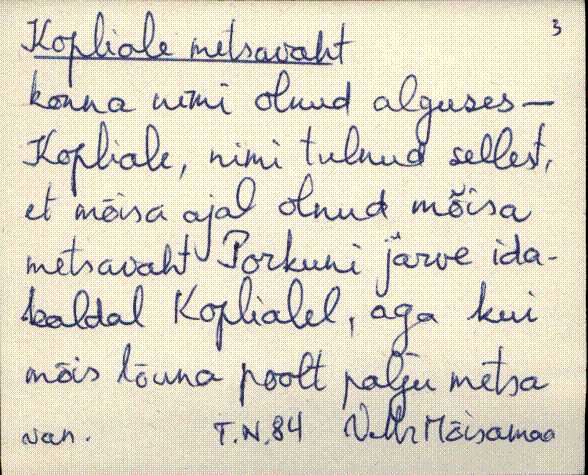 3
Kopliale metsavaht
konna nimi olnud alguses—
Kopliale, nimi tulnud sellest,
et mõisa ajal olnud mõisa
metsavaht Porkuni järve ida-
kaldal Koplialel, aga kui
mõis lõuna poolt palju metsa
T.N.84 Mõisamaa